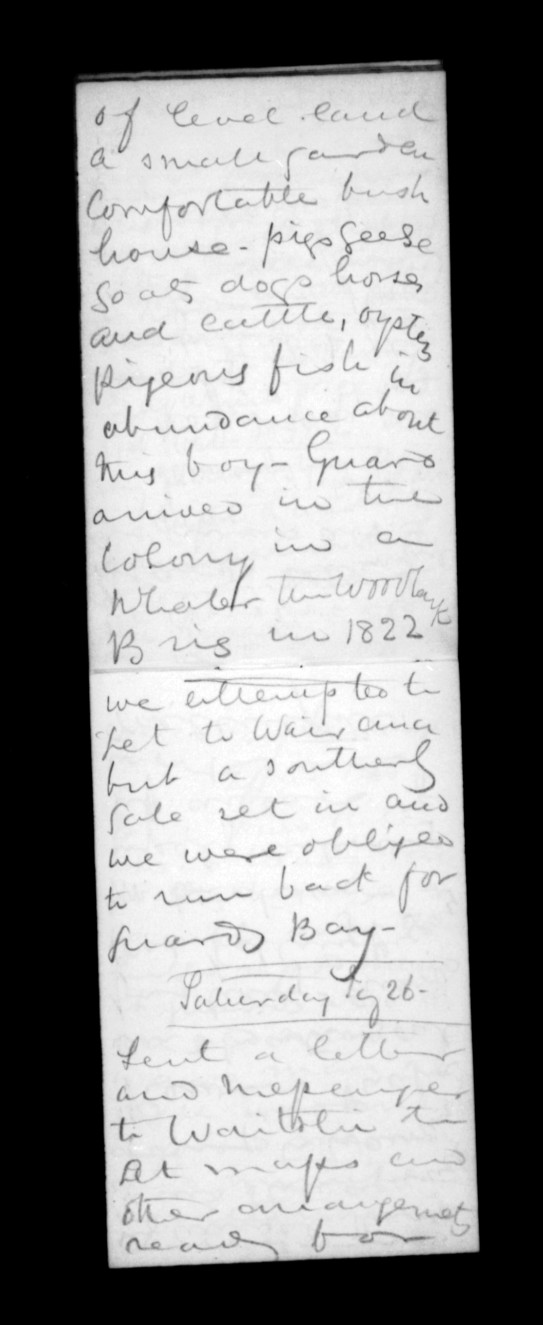 of level land
a small garden
Comfortable bush
house - pigs geese
goats dogs horses
and cattle, oysters
pigeons fish in
abundance about
this bay - Guard
arrived in the
Colony in a
Whaler the Woodlark
Brig in 1822
we attempted to
get to Wairau
but a southerly
gale set in and
we were obliged
to run back for
Guards Bay -
Saturday 26 -
Sent a letter
and messenger
to Waitohi to
get maps and
other arrangements
ready for